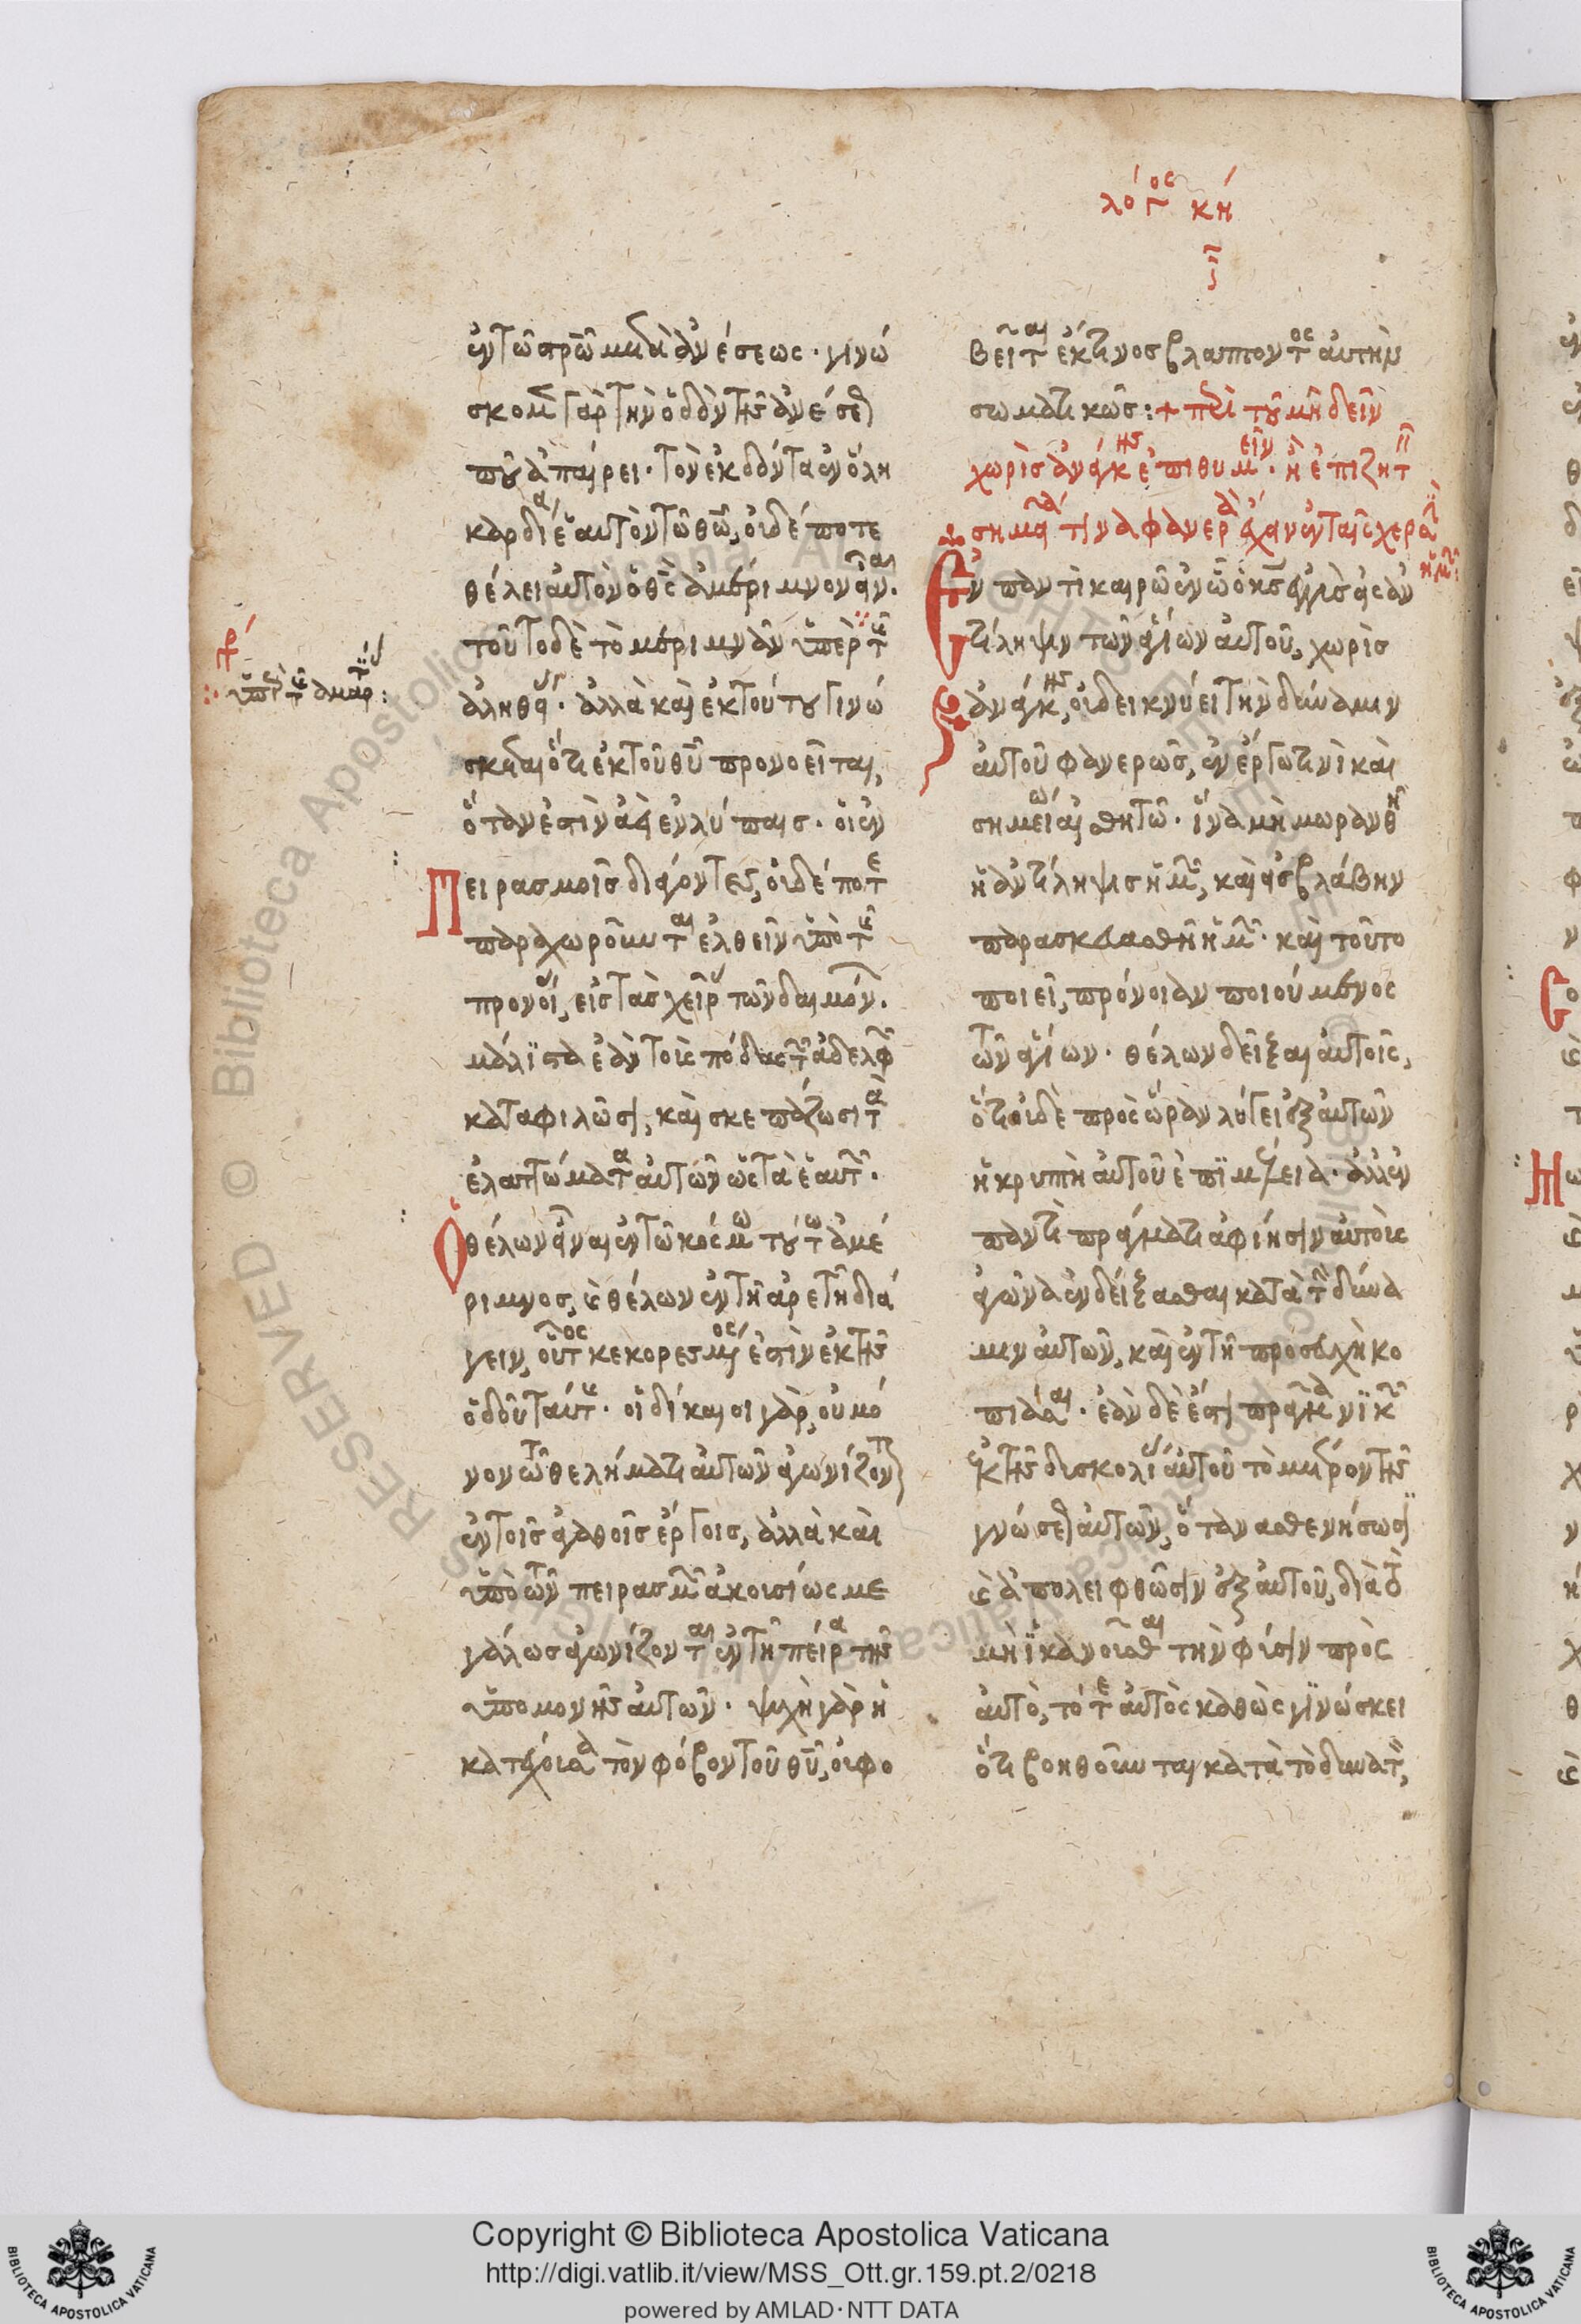 λόγος κη
ἐν τῷ στρώματι ἀνέσεως· γινώ
σκομεν γὰρ τὴν ὁδὸν τῆς ἀνέσεως
ποῦ ἀπαίρει· τὸν ἐκδόντα ἐν ὅλῃ
καρδίᾳ ἑαυτὸν τῷ θῷ, οὐδέποτε
θέλει αὐτὸν ὁ θς ἀμέριμνον εἶναι.
τοῦτο δὲ τὸ μεριμνᾶν ὑπὲρ τῆς
ἀληθείας· ἀλλὰ καὶ ἐκ τούτου γινώ
σκεται ὅτι ἐκ τοῦ θῦ προνοεῖται,
ὅταν ἐστὶν ἀεὶ ἐν λύπαις· οἱ ἐν
Πειρασμοῖς διάγοντες, οὐδέποτε
παραχωροῦνται ἐλθεῖν ὑπὸ τῆς
προνοίας, εἰς τὰς χεῖρας τῶν δαιμόνων.
μάλιστα ἐὰν τοὺς πόδας τῶν ἀδελφῶν
καταφιλῶσι, καὶ σκεπάζωσι τὰ
ἐλαττώματα αὐτῶν ὡς τὰ ἑαυτῶν.
Ὁ θέλων εἶναι ἐν τῷ κόσμῳ τούτῳ ἀμέ
ριμνος, καὶ θέλων ἐν τῇ ἀρετῇ διά
γειν, οὗτος κεκορεσμένος ἐστὶν ἐκ τῆς
ὁδοῦ ταύτης· οἱ δίκαιοι γὰρ, οὐ μό
νον τῷ θελήματι αὐτῶν ἀγωνίζονται
ἐν τοῖς ἀγαθοῖς ἔργοις, ἀλλὰ καὶ
ὑπὸ τῶν πειρασμῶν ἀκουσίως με
γάλως ἀγωνίζονται ἐν τῇ πείρᾳ τῆς
ὑπομονῆς αὐτῶν· ψυχὴ γὰρ ἡ
κατέχουσα τὸν φόβον τοῦ θῦ, οὐ φο
βεῖται ἐκ τινος βλάπτοντος αὐτὴν
σωματικῶς: + περὶ τοῦ μὴ δεῖν
χωρὶς ἀνάγκης ἐπιθυμεῖν· ἢ ἐπιζητεῖν
σημεῖά τινα φανερὰ ἔχειν ἐν ταῖς χερσὶν
ἡμῶν
Ἐν παντὶ καιρῷ ἐν ᾧ ὁ κς ἐγγίζει εἰς ἀν
τίληψιν τῶν ἁγίων αὐτοῦ, χωρὶς
ἀνάγκης, οὐ δεικνύει τὴν δύναμιν
αὐτοῦ φανερῶς, ἐν ἔργῳ τινὶ καὶ
σημείῳ αἰσθητῷ· ἵνα μὴ μωρανθῇ
ἡ ἀντίληψις ἡμῶν, καὶ εἰς βλάβην
παρασκευασθῇ ἡμῖν· καὶ τοῦτο
ποιεῖ, πρόνοιαν ποιούμενος
τῶν ἁγίων· θέλων δεῖξαι αὐτοῖς,
ὅτι οὐδὲ πρὸς ὥραν λήγει ἐξ αὐτῶν
ἡ κρυπτὴ αὐτοῦ ἐπιμέλεια· ἀλλ' ἐν
παντὶ πράγματι ἀφίησιν αὐτοὺς
ἀγῶνα ἐνδείξασθαι κατὰ τὴν δύνα
μιν αὐτῶν, καὶ ἐν τῇ προσευχῇ κο
πιάσαι· ἐὰν δὲ ἐστὶ πρᾶγμα νικῶν
ἐκ τῆς δυσκολίας αὐτοῦ τὸ μέτρον τῆς
γνώσεως αὐτῶν, ὅταν ἀσθενήσωσι
καὶ ἀπολειφθῶσιν ἐξ αὐτοῦ, διὰ τὸ
μὴ ἱκανοῦσθαι τὴν φύσιν πρὸς
αὐτὸ, τότε αὐτὸς καθὼς γινώσκει
ὅτι βοηθοῦνται κατὰ τὸ δυνατὸν,
Copyright © Biblioteca Apostolica Vaticana
http://digi.vatlib.it/view/MSS_Ott.gr.159.pt.2/0218
powered by AMLAD · NTT DATA